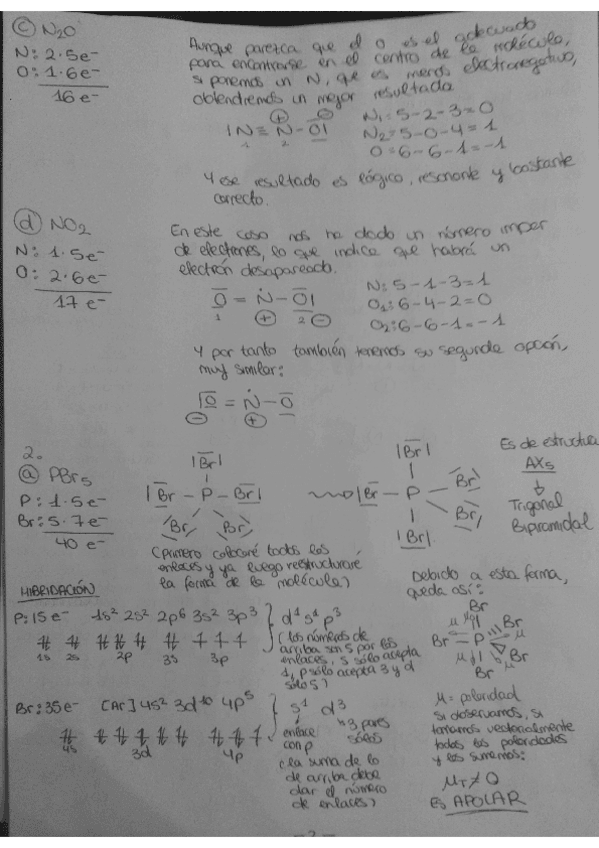 c) N2O
N: 2·5e-
O: 1·6e-
16 e-
Aunque parezca que el O es el adecuado
para encontrarse en el centro de la molécula,
si ponemos un N, que es menos electronegativo,
obtendremos un mejor resultado
|N≡N-O|
+ -
1 2
N1=5-2-3=0
N2=5-0-4=1
O=6-6-1=-1
Y ese resultado es lógico, resonante y bastante
correcto.
d) NO2
N: 1·5e-
O: 2·6e-
17 e-
En este caso nos ha dado un número impar
de electrones, lo que indica que habrá un
electrón desapareado.
O=N-O|
1 + 2 -
N: 5-1-3=1
O1: 6-4-2=0
O2: 6-6-1=-1
Y por tanto también tenemos su segunda opción,
muy similar:
|O=N-O
- +
2.
a) PBr5
P: 1·5e-
Br: 5·7e-
40 e-
|Br|
|Br-P-Br|
Br Br
(Primero colocaré todos los
enlaces y ya luego reestructuraré
la forma de la molécula)
|Br|
|Br-P Br
Br
|Br|
Es de estructura
AX5
↓
Trigonal
Bipiramidal
HIBRIDACIÓN
P: 15e- 1s2 2s2 2p6 3s2 3p3
1s 2s 2p 3s 3p
d1s1p3
(los números de
arriba son 5 por los
enlaces, s sólo acepta
1, p sólo acepta 3 y d
sólo 5)
Br: 35e- [Ar] 4s2 3d10 4p5
4s 3d 4p
s1 d3
enlace
con p
3 pares
sólos
(la suma de lo
de arriba debe
dar el número
de enlaces)
Debido a esta forma,
queda así:
Br
μ Br
Br=P μ
μ Br
Br
μ = polaridad
Si observamos, si
tomamos vectorialmente
todas las polaridades
y las sumamos:
μT≠0
ES APOLAR
-2-